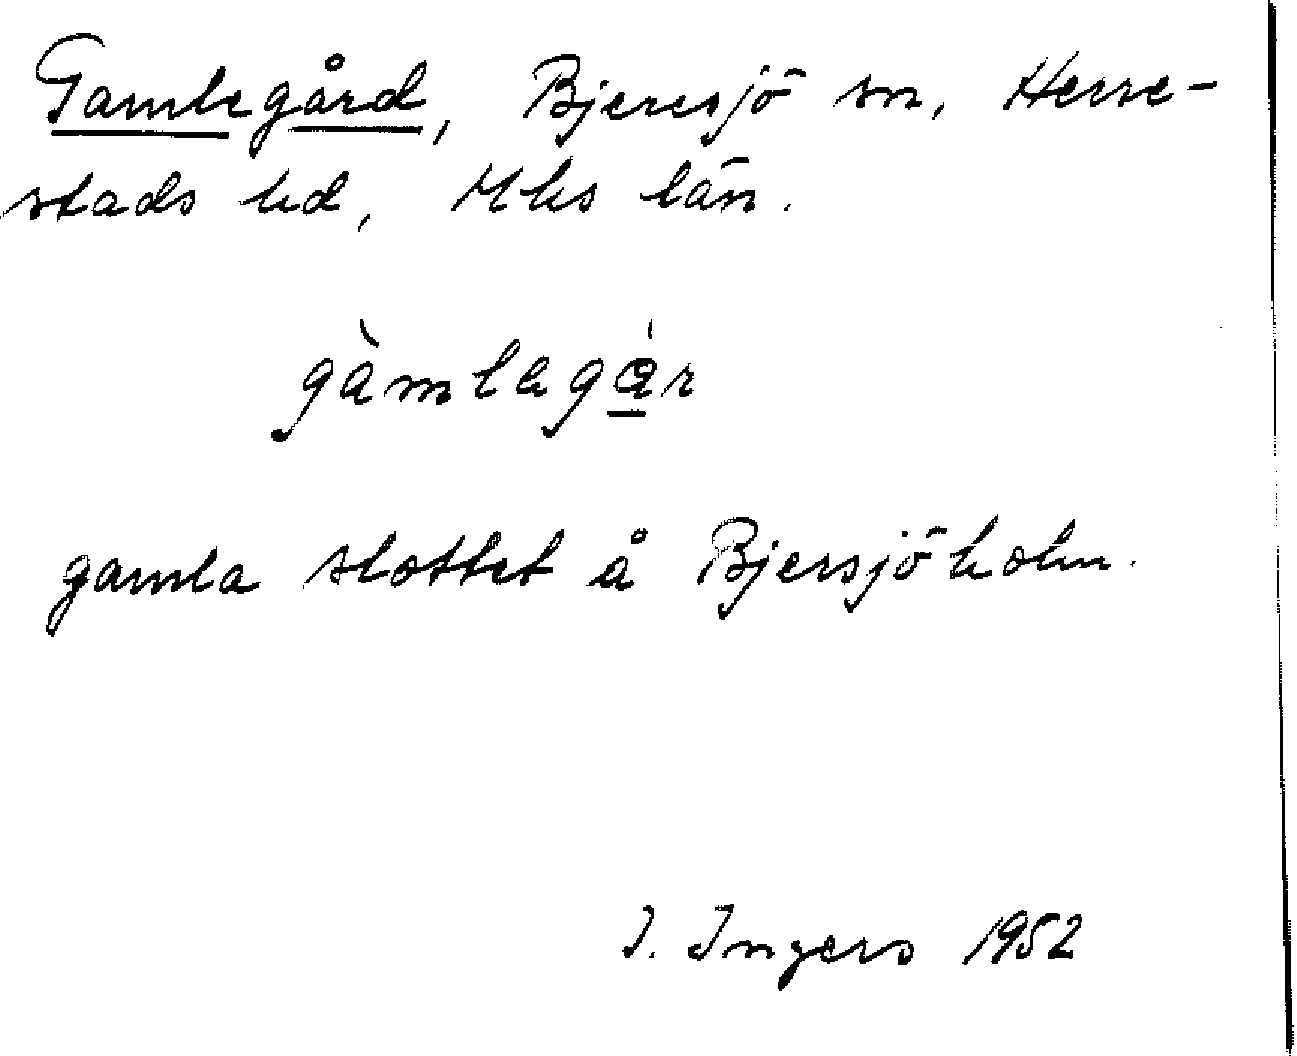 Gamlegård, Bjeresjö sn, Herre-
stads hd, Mhs län.
gàmlagár
gamla slottet å Bjersjöholm.
I. Ingers 1952